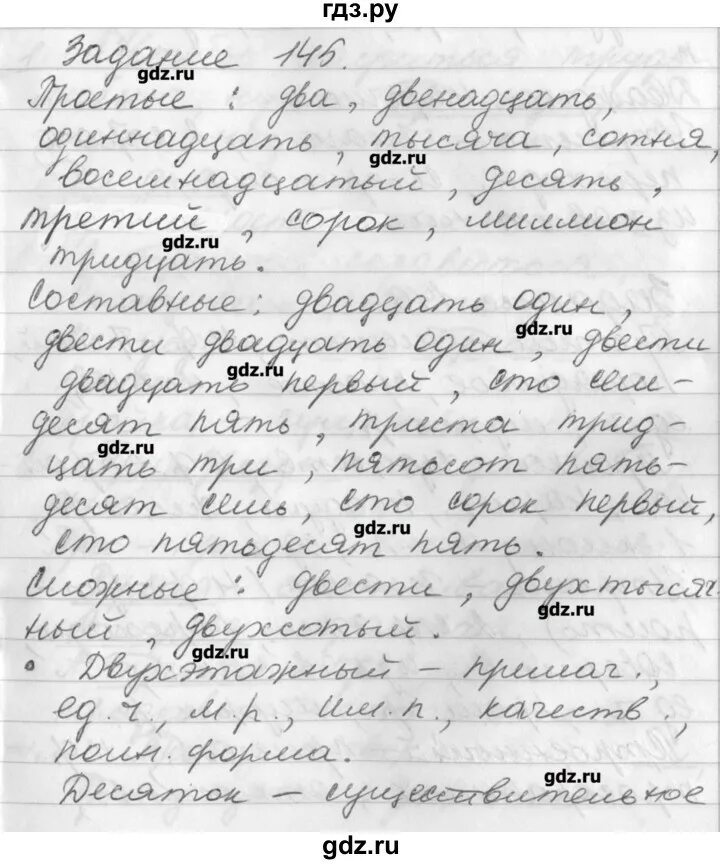 гдз.ру
Задание 145.
gdz.ru
Простые : два, двенадцать,
одиннадцать, тысяча, сотня,
gdz.ru
восемнадцатый, десять,
третий, сорок, миллион
gdz.ru
тридцать.
Составные: двадцать один,
gdz.ru
двести двадцать один, двести
gdz.ru
двадцать первый, сто семь-
десят пять, триста трид-
gdz.ru
цать три, пятьсот пять-
десят семь, сто сорок первый,
gdz.ru
сто пятьдесят пять.
Сложные: двести, двухтысяч-
gdz.ru
ный, двухсотый.
gdz.ru
Двухэтажный - прилаг.,
ед.ч., м.р., Им.п., качеств.,
полн. форма.
gdz.ru
Десяток - существительное
gdz.ru